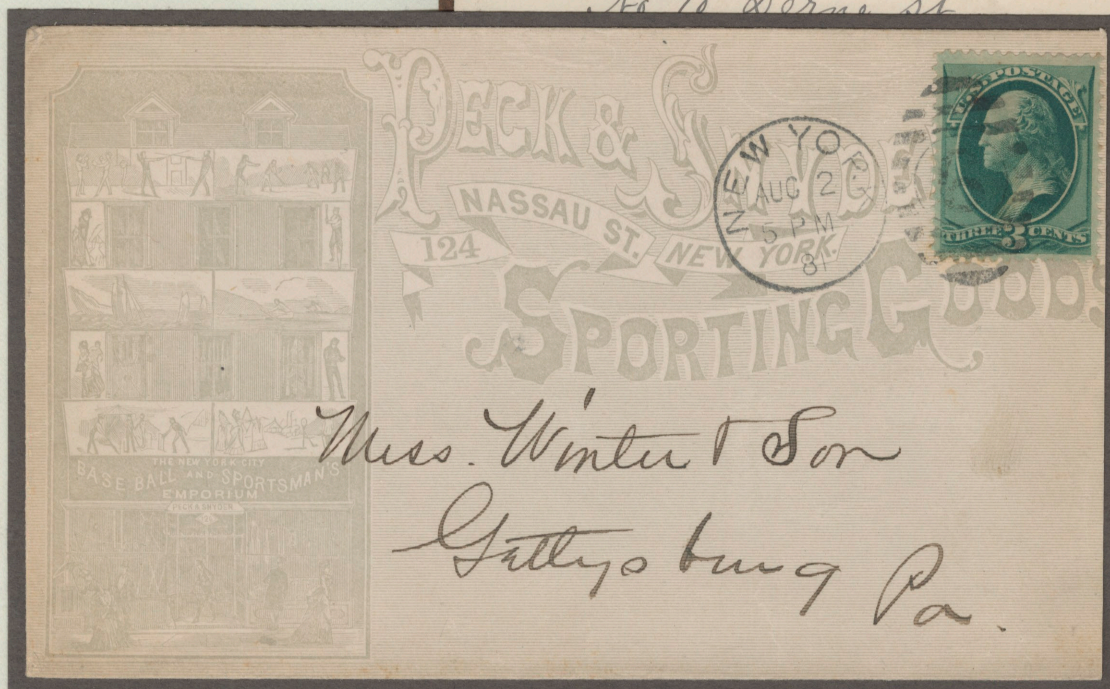 No 10 Derne st
PECK & SNYDER
NASSAU ST.
124
NEW YORK.
SPORTING GOODS
NEW YORK
AUG 2
5 PM
81
U.S. POSTAGE
THREE 3 CENTS
THE NEW YORK CITY
BASE BALL AND SPORTSMAN'S
EMPORIUM
PECK & SNYDER
Mess. Winter & Son
Gettysburg
Pa.